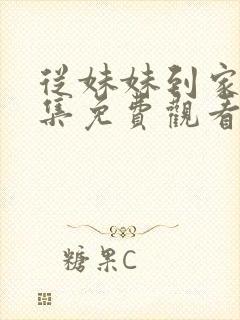 從妹妹到家
集免費觀看
糖果C